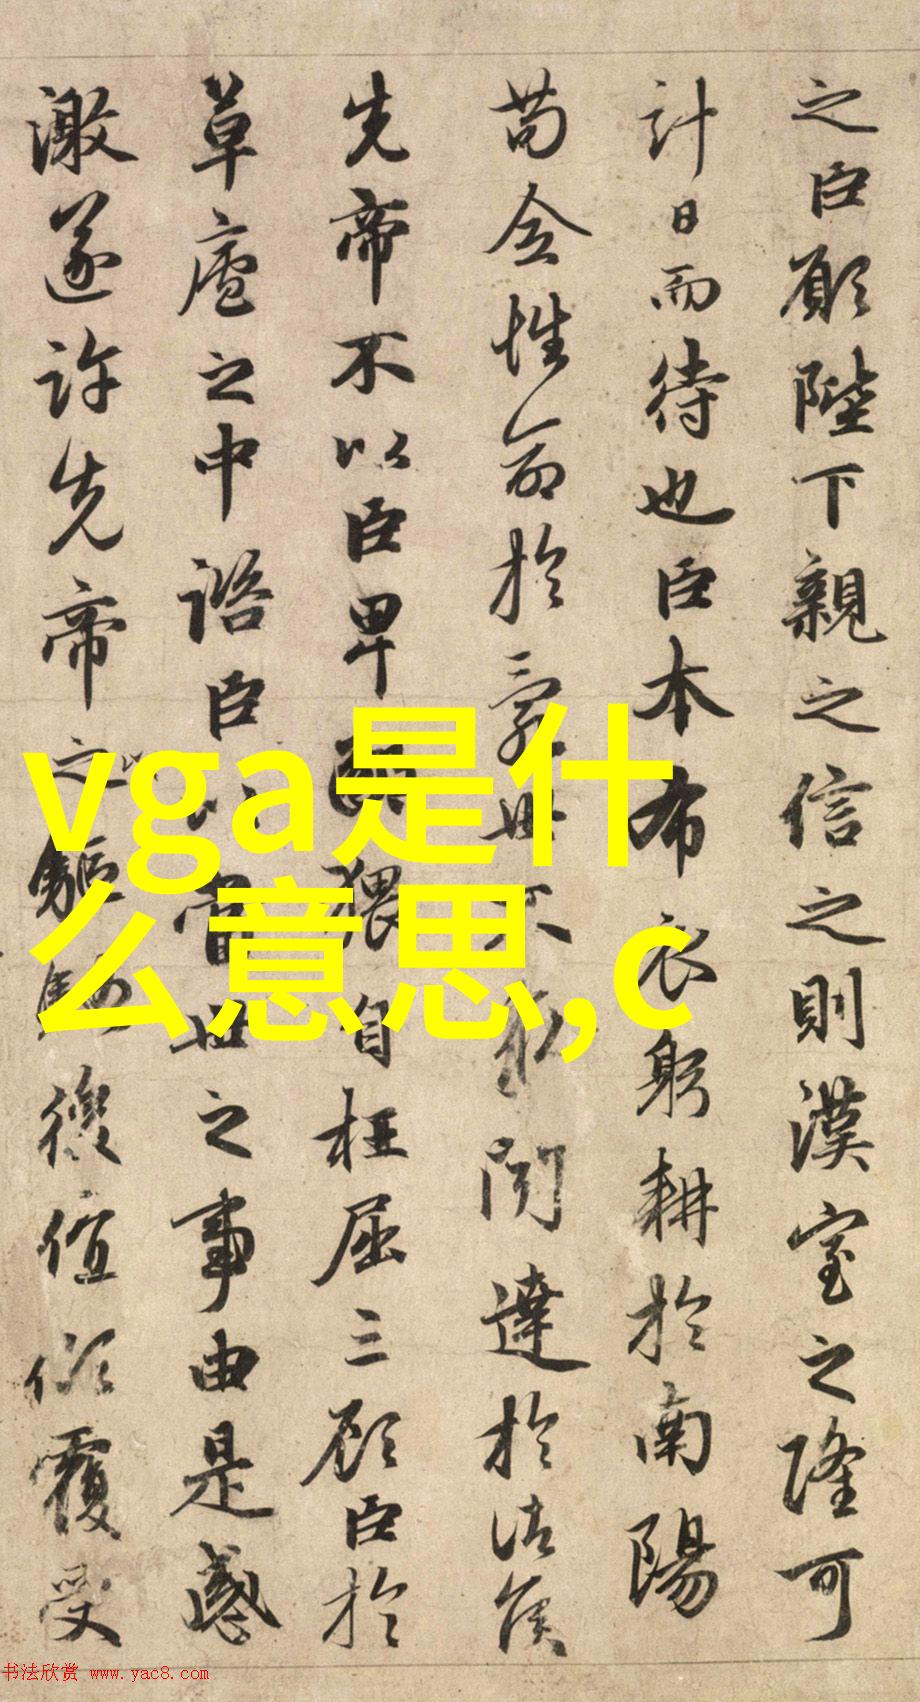 之臣願陛下親之信之則漢室之隆可
計日而待也臣本布衣躬耕於南陽
苟全性命於亂世不求聞達於諸侯
先帝不以臣卑鄙猥自枉屈三顧臣於
草廬之中諮臣以當世之事由是感
激遂許先帝之以驅馳後值傾覆受
vga是什
么意思,c
书法欣赏 www.yac8.com